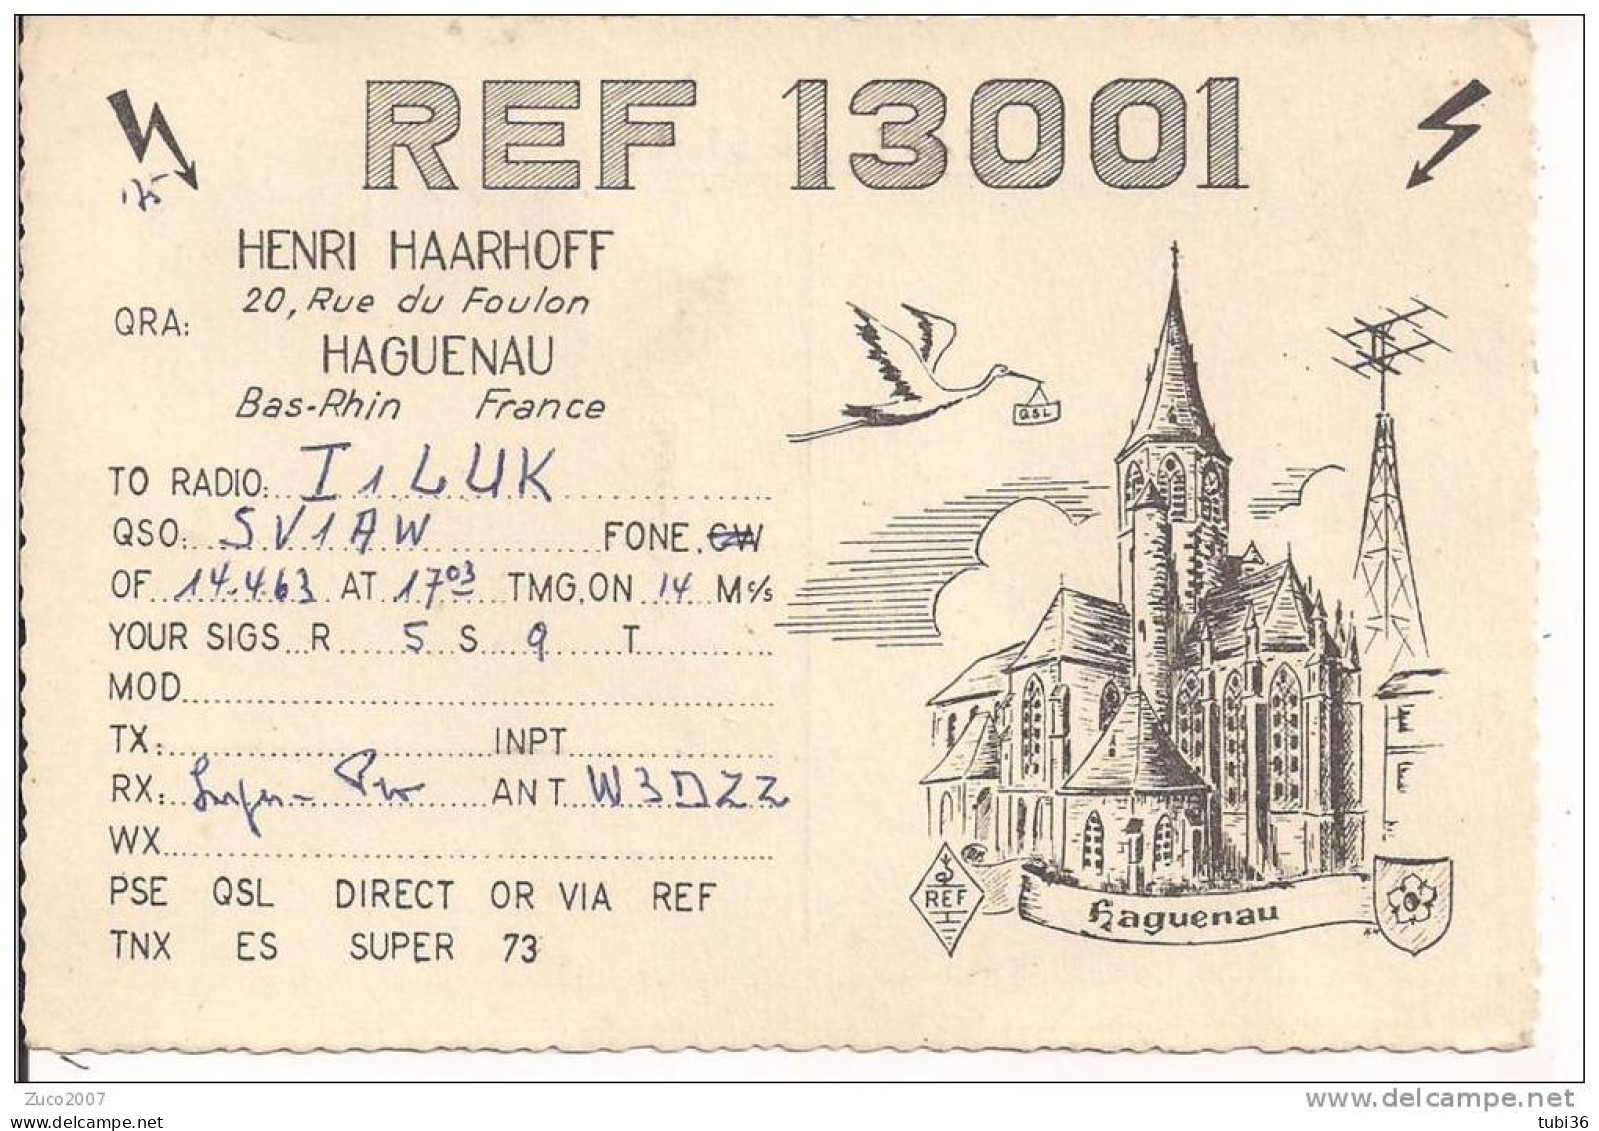 REF 13001
'75
HENRI HAARHOFF
20, Rue du Foulon
QRA:
HAGUENAU
Bas-Rhin France
QSL
TO RADIO: I1LUK
QSO: SV1AW FONE, CW
OF 14.4.63 AT 17 03 TMG, ON 14 Mc/s
YOUR SIGS R 5 S 9 T
MOD
TX: INPT
RX: Super- Pro ANT W3DZZ
WX
PSE QSL DIRECT OR VIA REF
TNX ES SUPER 73
REF
Haguenau
Zuco2007
www.delcampe.net
posted by owner
tubi36